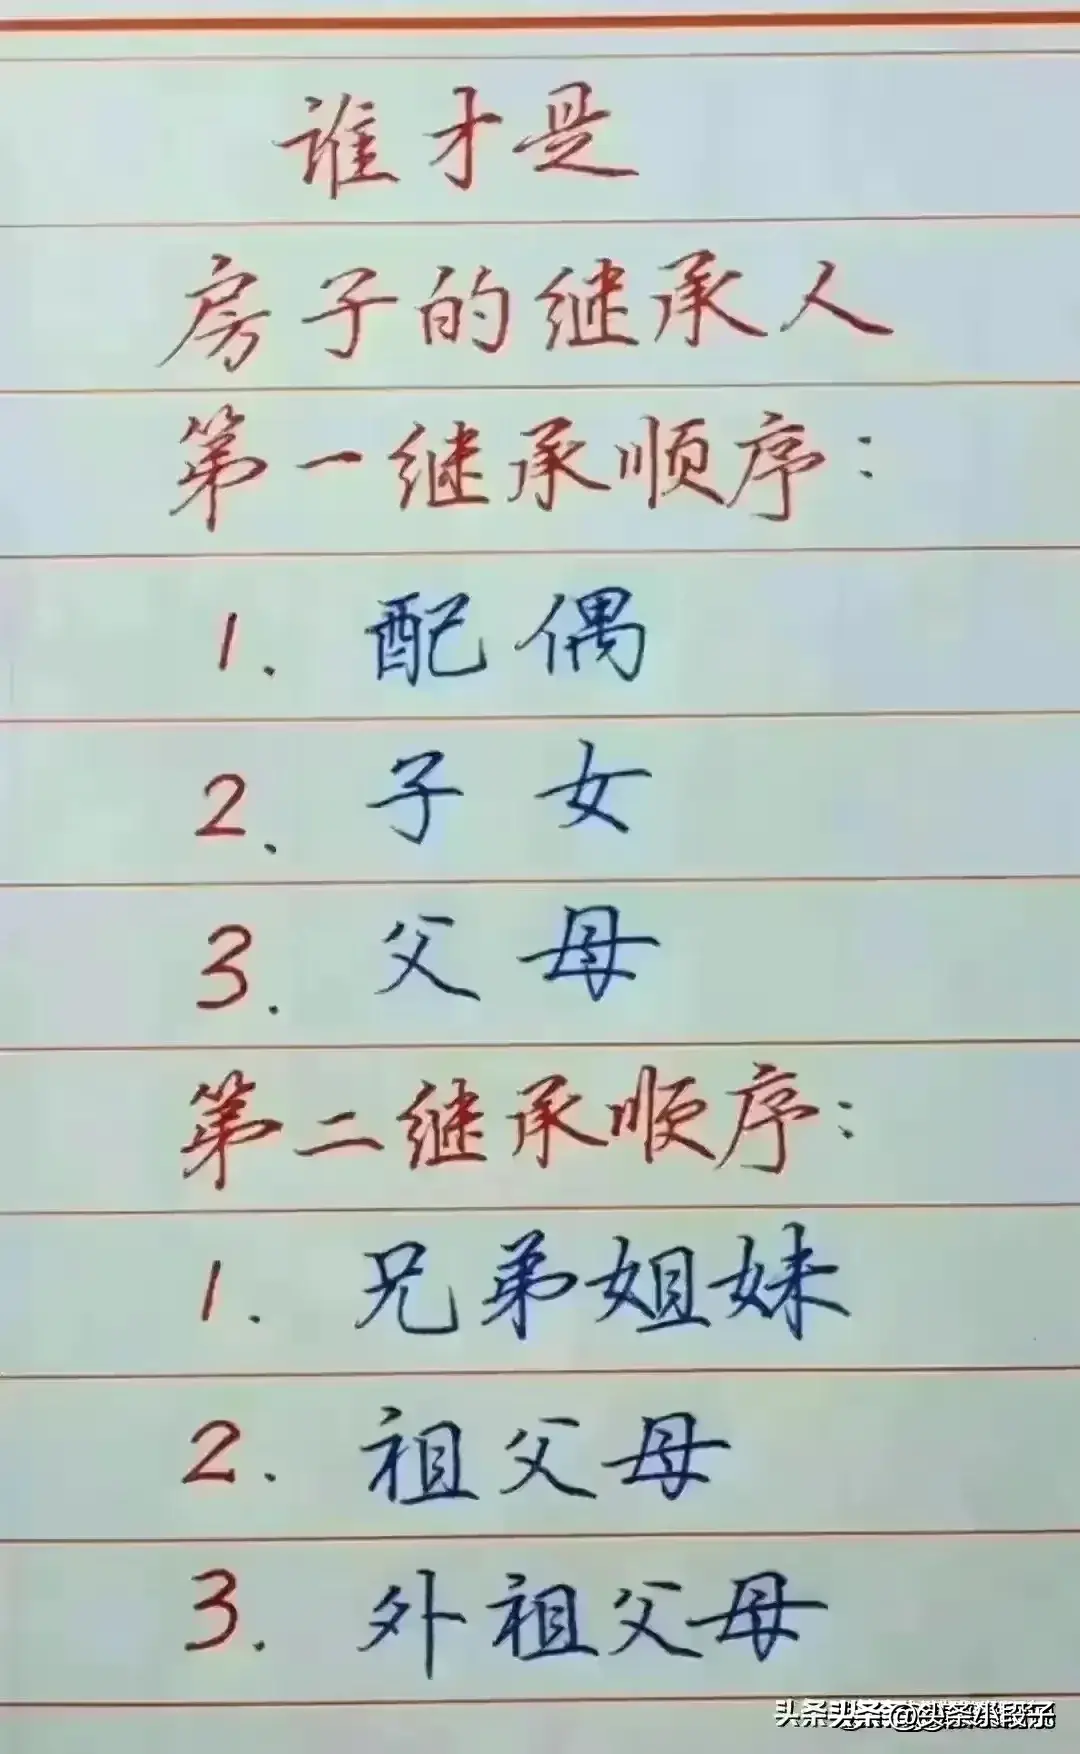 谁才是
房子的继承人
第一继承顺序:
1. 配偶
2. 子女
3. 父母
第二继承顺序:
1. 兄弟姐妹
2. 祖父母
3. 外祖父母
头条 @头条小段子